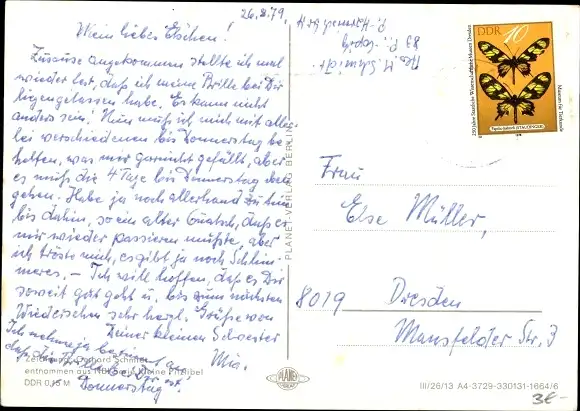 26.8.79.
Mein liebes Elschen!
Zuhause angekommen stellte ich mal
wieder fest, daß ich meine Brille bei Dir
liegengelassen habe. Es kann nicht
anders sein! Nun muß ich mich mit aller-
lei verschiedenen bis Donnerstag be-
helfen, was mir garnicht gefällt, aber
es muß die 4 Tage bis Donnerstag
gehen. Habe ja noch allerhand zu tun
bis dahin, so ein alter Quatsch, daß es
mir wieder passieren mußte, aber
ich tröste mich, es gibt ja noch Schlim-
meres. – Ich will hoffen, daß es Dir
soweit gut geht u. bis zum nächsten
Wiedersehen sehr herzl. Grüße von
Deiner kleinen Schwester
Mia.
Ich nehme ja bestimmt an,
daß die Brille bei Dir ist!
Donnerstag!
Gerhard
entnommen aus
DDR 0,15 M
PLANET-VERLAG BERLIN
PLANET
M. Schmidt
DDR 10
250 Jahre Staatliche Wissenschaftliche Museen Dresden
Museum für Tierkunde
Frau
Else Müller,
8019 Dresden
Mansfelder Str. 3
III/26/13 A4-3729-330131-1664/6
3€-